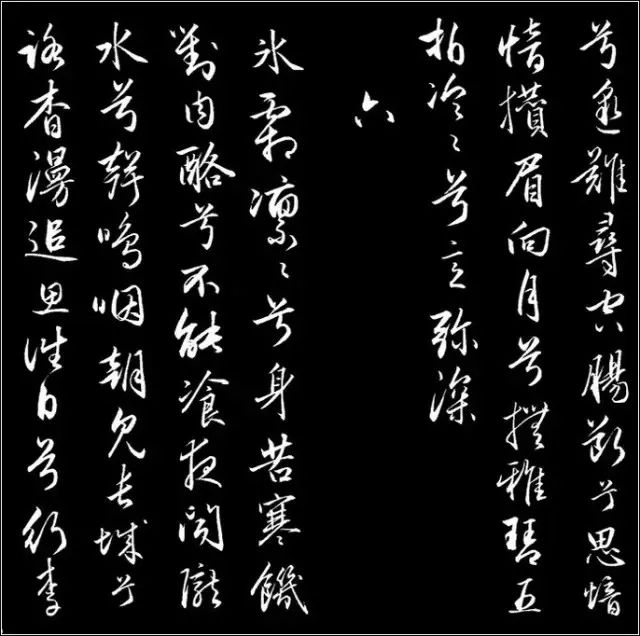 兮邈難尋空腸斷兮思愔
愔攢眉向月兮撫雅琴五
拍泠〻兮意弥深
六
氷霜凛〻兮身苦寒饑
對肉酪兮不能飡夜聞隴
水兮聲嗚咽朝見長城兮
路杳漫追思往日兮行李